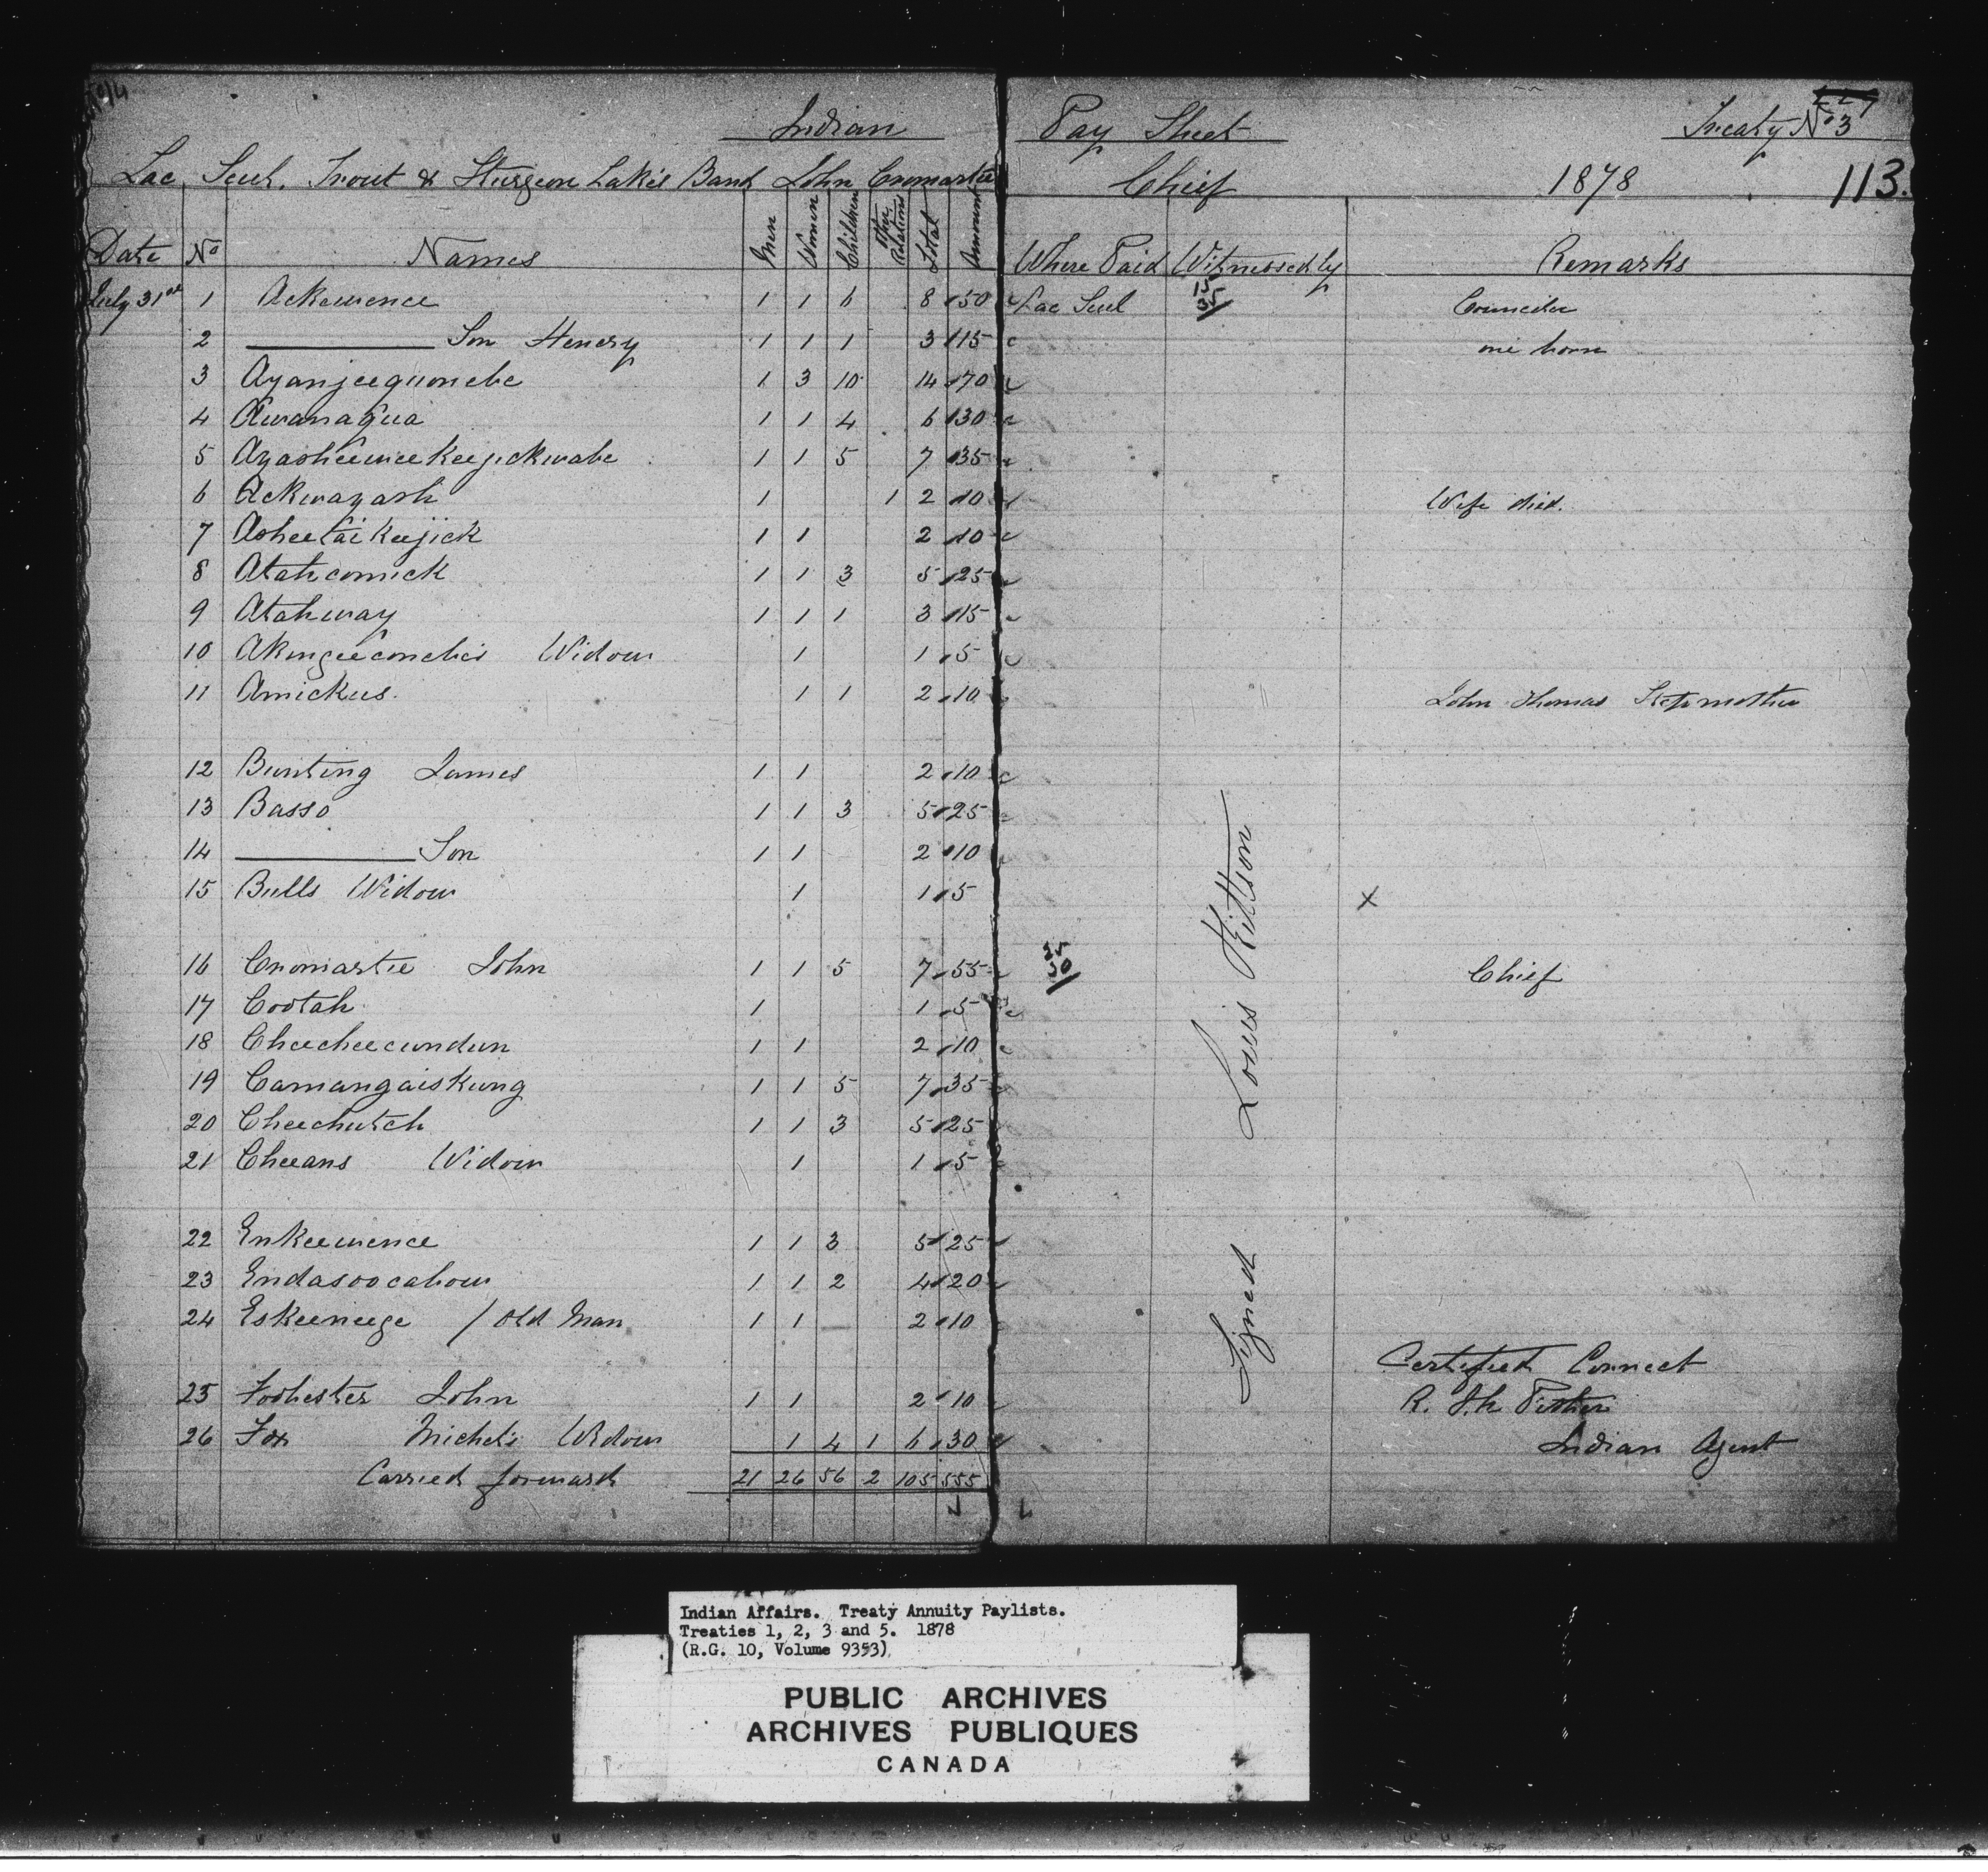 Indian Pay Sheet Treaty No 3
Lac Seul, Trout & Sturgeon Lakes Band John Cromartie Chief 1878 113.
Date No Names Men Women Children Other Relations Total Amount Where Paid Witnessed by Remarks
July 31st 1 Ackewence 1 1 6 8 50 Lac Seul 15 35 Councilor
2 ——— Son Henery 1 1 1 3 15 one born
3 Ayanjeequonebe 1 3 10 14 70
4 Awanaqua 1 1 4 6 30
5 Ayasheeweekeejickwabe 1 1 5 7 35
6 Ackwayash 1 1 2 10 Wife died.
7 Asheetaikeejick 1 1 2 10
8 Atahcomick 1 1 3 5 25
9 Atahway 1 1 1 3 15
10 Akingeeconebe's Widow 1 1 5
11 Amickus. 1 1 2 10 John Thomas Stepmother
12 Bunting James 1 1 2 10
13 Basso 1 1 3 5 25
14 ——— Son 1 1 2 10
15 Bulls Widow 1 1 5 x
16 Cromartie John 1 1 5 7 55 Chief
17 Cootah 1 1 5
18 Cheecheecundun 1 1 2 10
19 Camangaiskung 1 1 5 7 35
20 Cheechutch 1 1 3 5 25
21 Cheeans Widow 1 1 5
22 Enkeewence 1 1 3 5 25
23 Endasoocabow 1 1 2 4 20
24 Eskeeneege / Old Man 1 1 2 10
25 Foohester John 1 1 2 10
26 Fox Michel's Widow 1 4 1 6 30
Carried forward 21 26 56 2 105 555
Signed Louis Kittson
Certified Correct
R. J. N. Pither
Indian Agent
Indian Affairs. Treaty Annuity Paylists.
Treaties 1, 2, 3 and 5. 1878
(R.G. 10, Volume 9353)
PUBLIC ARCHIVES
ARCHIVES PUBLIQUES
CANADA